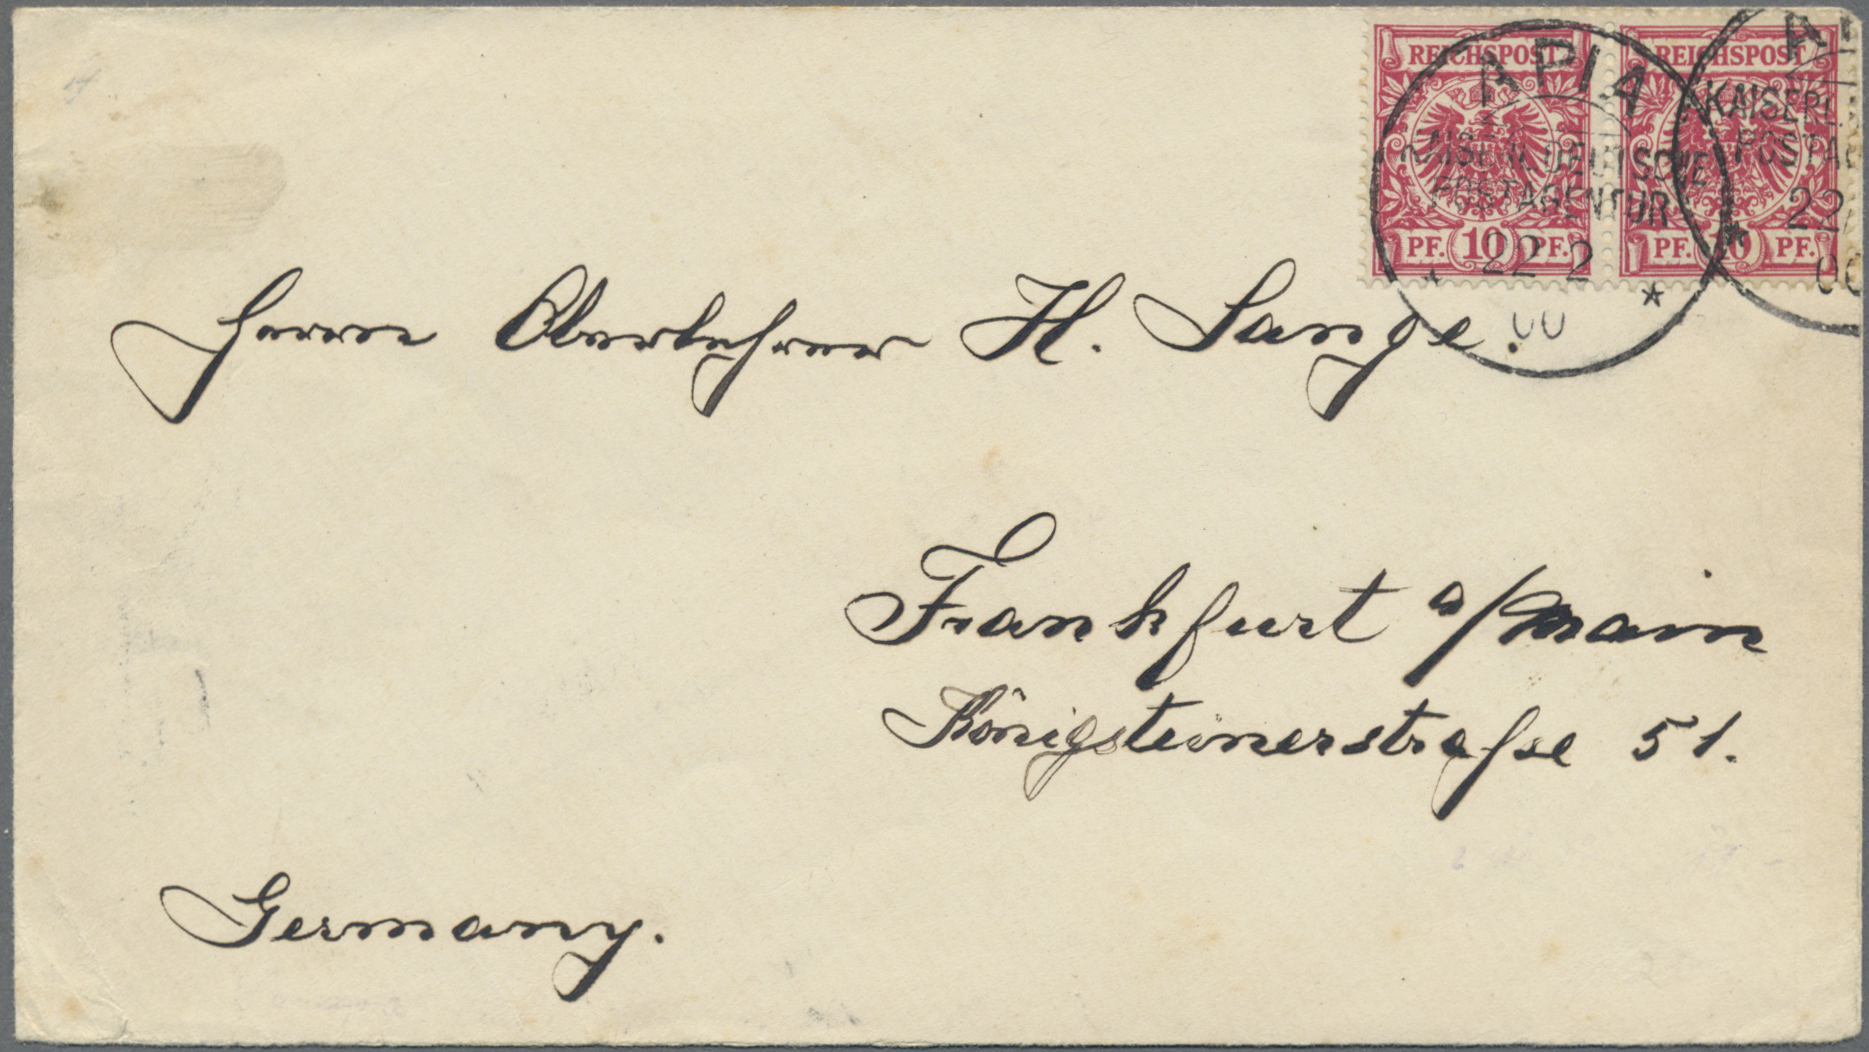 REICHSPOST REICHSPOST
PF. 10 PF. PF. 10 PF.
APIA
KAISERL. DEUTSCHE
POSTAGENTUR
22 2
00
KAISERL.
22
Herrn Oberlehrer H. Lange.
Frankfurt a/Main
Königsteinerstraße 51.
Germany.